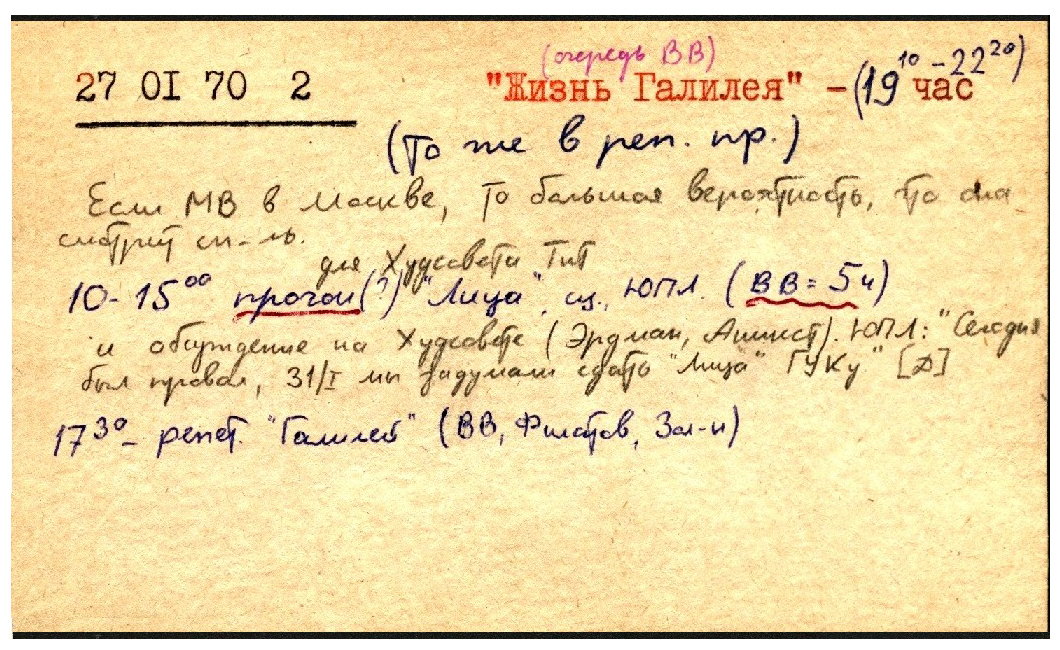 (очередь ВВ)
27 01 70 2 "Жизнь Галилея" - (19¹⁰ - 22²⁰) час
(То же в реп. пр.)
Если МВ в Москве, то большая вероятность, что она
смотрит сп-ль.
для Худсовета ТнТ
10-15⁰⁰ прогон (?) "Лица", сц., ЮПЛ. (ВВ = 5ч)
и обсуждение на Худсовете (Эрдман, Аникст). ЮПЛ: "Сегодня
был провал, 31/I мы задумали сдать "Лица" ГУКу" [Д]
17³⁰ - репет. "Галилей" (ВВ, Филатов, Зол-н)